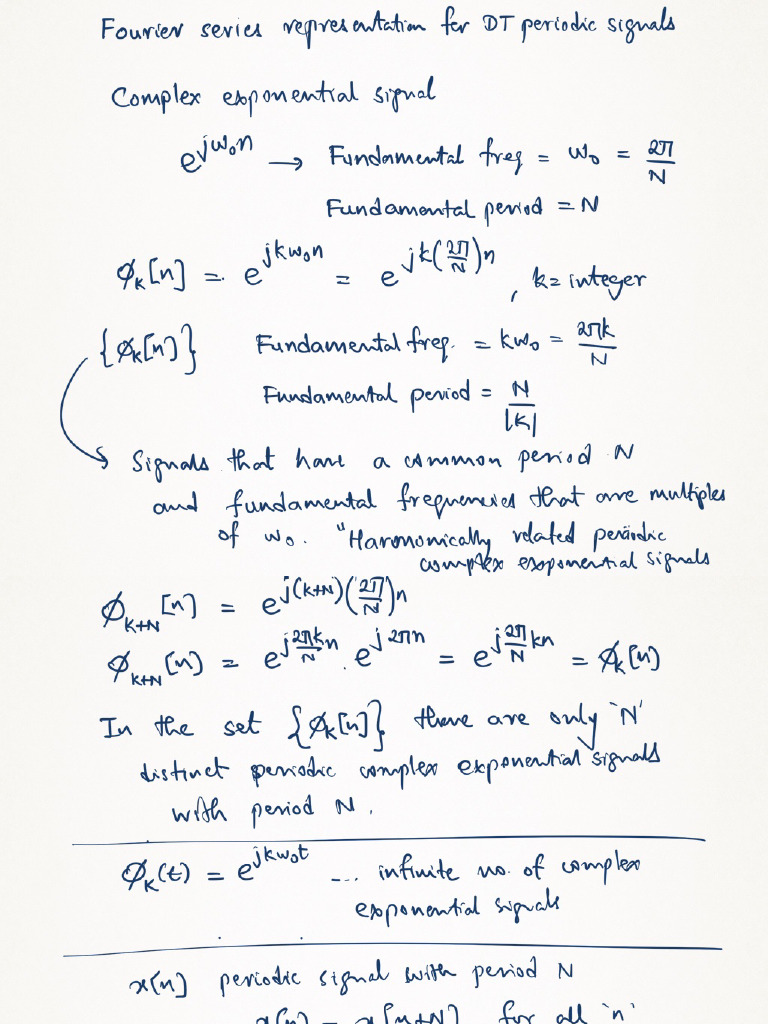 Fourier series representation for DT periodic signals
Complex exponential signal
e^{jω₀n} → Fundamental freq = ω₀ = 2π/N
Fundamental period = N
ϕ_k[n] = e^{jkω₀n} = e^{jk(2π/N)n} , k = integer
{ϕ_k[n]} Fundamental freq. = kω₀ = 2πk/N
Fundamental period = N/|k|
Signals that have a common period N
and fundamental frequencies that are multiples
of ω₀. "Harmonically related periodic
complex exponential signals
ϕ_{k+N}[n] = e^{j(k+N)(2π/N)n}
ϕ_{k+N}[n] = e^{j(2πk/N)n} . e^{j2πn} = e^{j(2π/N)kn} = ϕ_k[n]
In the set {ϕ_k[n]} there are only 'N'
distinct periodic complex exponential signals
with period N.
ϕ_k(t) = e^{jkω₀t} --. infinite no. of complex
exponential signals
x[n] periodic signal with period N
x[n] = x[n+N] for all 'n'